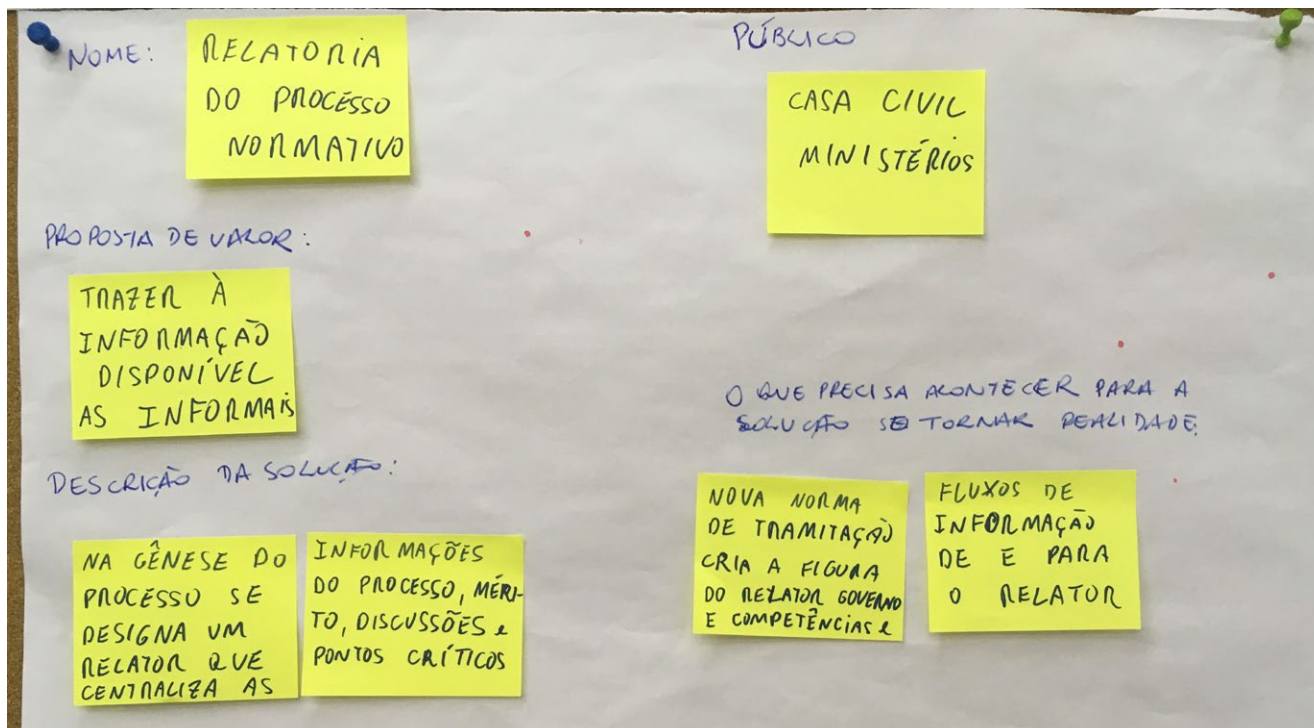 NOME:
RELATORIA
DO PROCESSO
NORMATIVO
PÚBLICO
CASA CIVIL
MINISTÉRIOS
PROPOSTA DE VALOR:
TRAZER À
INFORMAÇÃO
DISPONÍVEL
AS INFORMAIS
DESCRIÇÃO DA SOLUÇÃO:
NA GÊNESE DO
PROCESSO SE
DESIGNA UM
RELATOR QUE
CENTRALIZA AS
INFORMAÇÕES
DO PROCESSO, MÉRI-
TO, DISCUSSÕES e
PONTOS CRÍTICOS
O QUE PRECISA ACONTECER PARA A
SOLUÇÃO SE TORNAR REALIDADE.
NOVA NORMA
DE TRAMITAÇÃO
CRIA A FIGURA
DO RELATOR GOVERNO
E COMPETÊNCIAS e
FLUXOS DE
INFORMAÇÃO
DE E PARA
O RELATOR